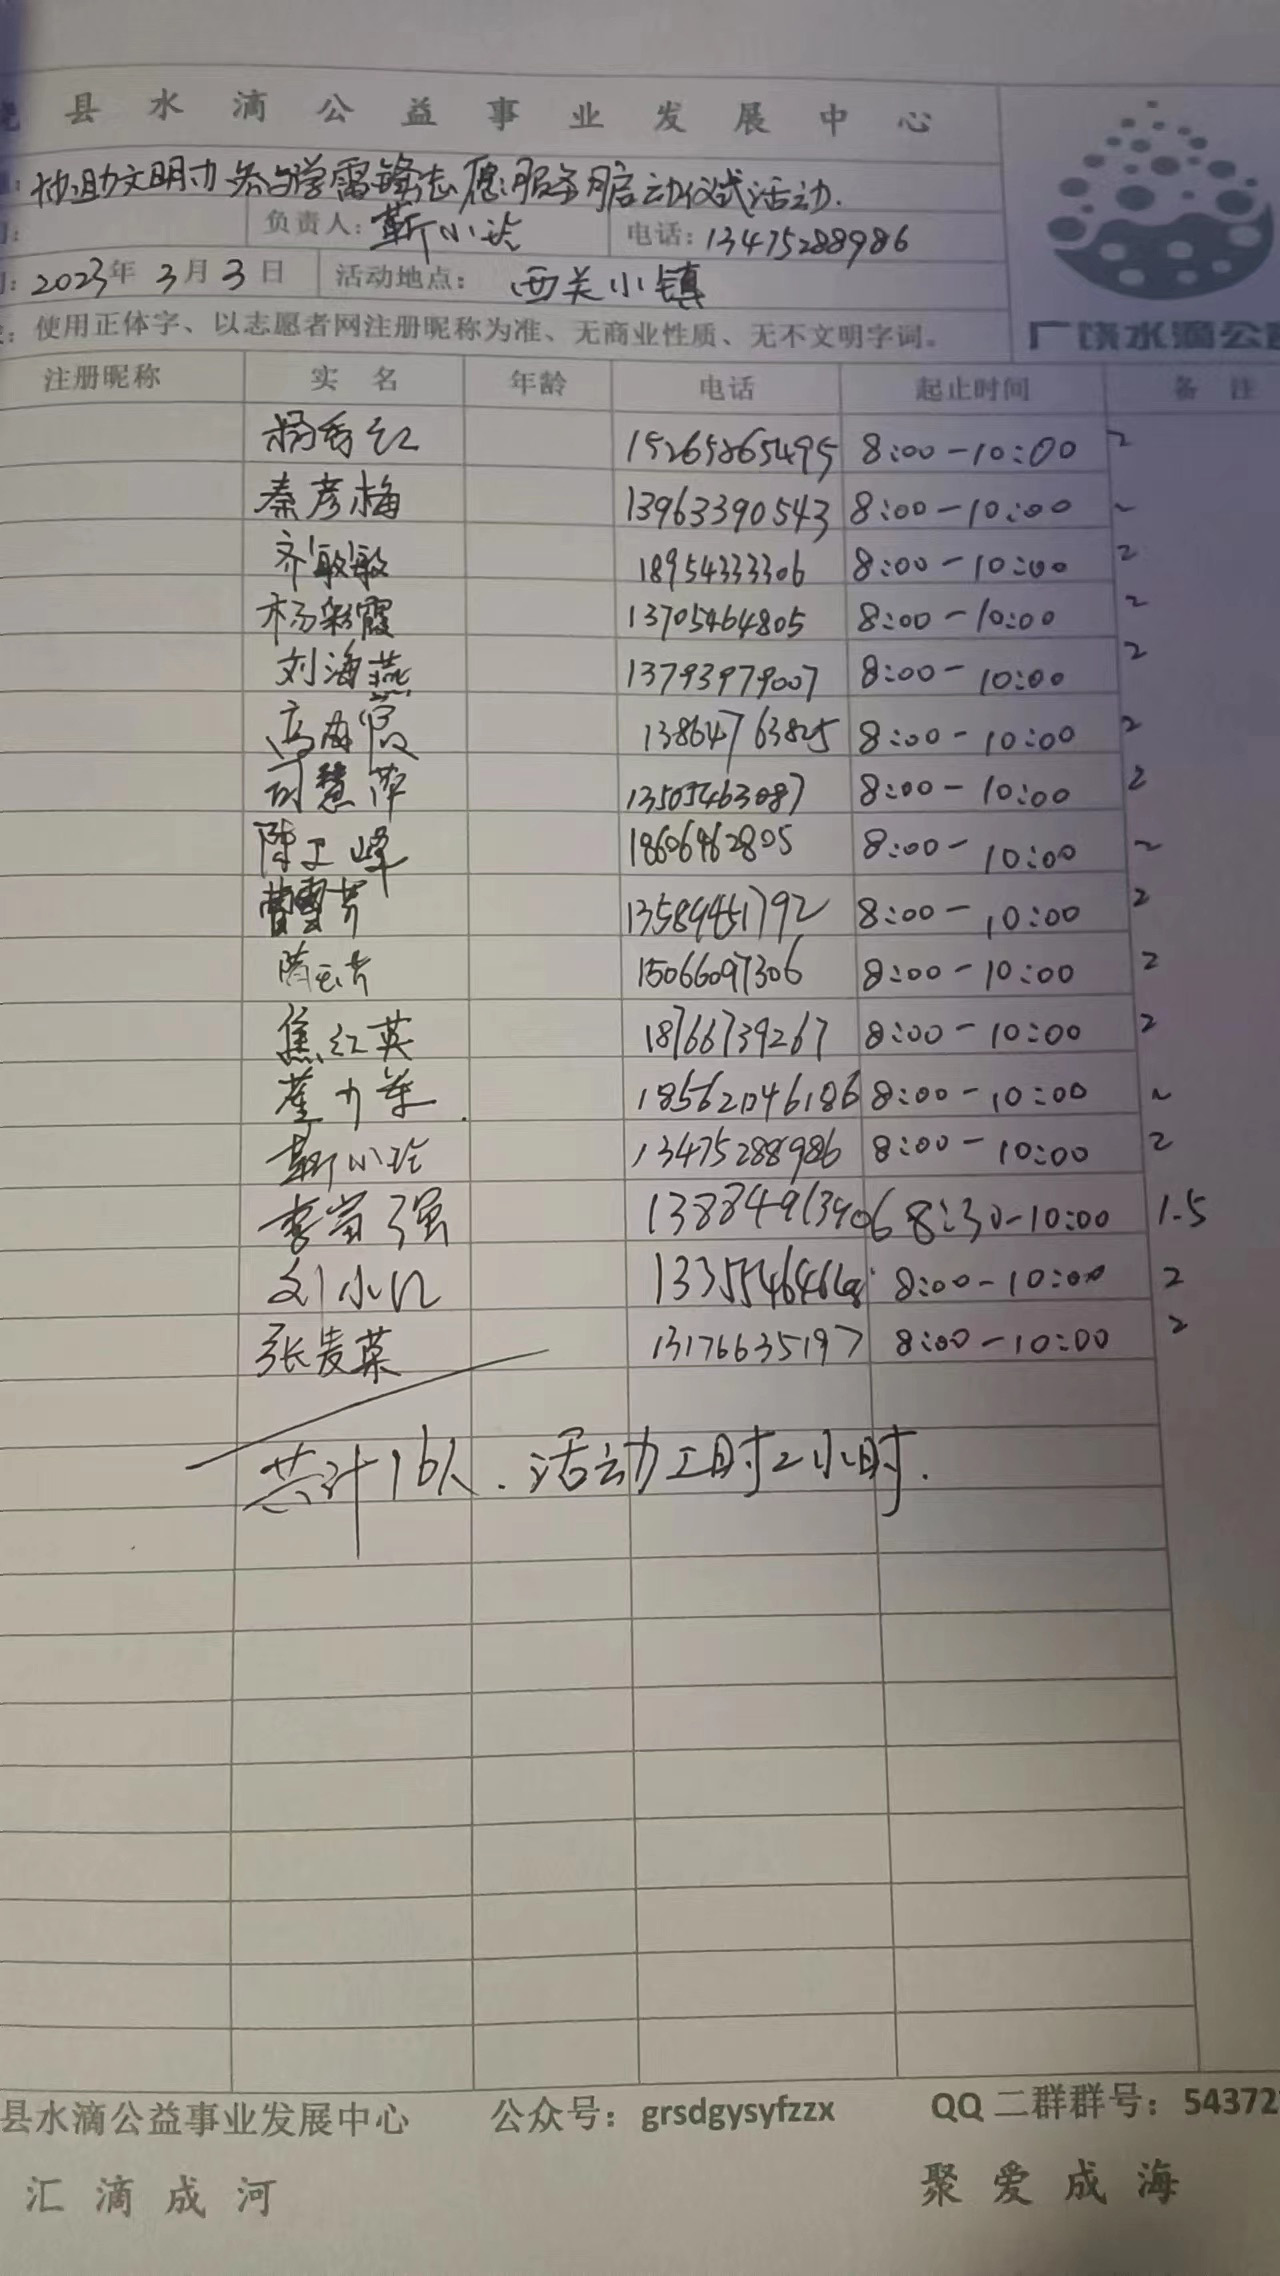 县水滴公益事业发展中心
协助文明办参与学雷锋志愿服务月启动仪式活动.
负责人: 靳小玲 电话: 13475288986
2023年3月3日 活动地点: 西关小镇
使用正体字、以志愿者网注册昵称为准、无商业性质、无不文明字词。
广饶水滴公益
注册昵称 实名 年龄 电话 起止时间 备注
杨秀红 15265865495 8:00-10:00 2
秦彦梅 13963390543 8:00-10:00 2
齐敏敏 18954333306 8:00-10:00 2
杨彩霞 13705464805 8:00-10:00 2
刘海燕 13793979007 8:00-10:00 2
高海霞 13864763825 8:00-10:00 2
慧萍 13505463087 8:00-10:00 2
陈卫峰 18606462805 8:00-10:00 2
曹雪芹 13589451792 8:00-10:00 2
隋云芳 15066097306 8:00-10:00 2
焦红英 18766739267 8:00-10:00 2
18562046186 8:00-10:00 2
靳小玲 13475288986 8:00-10:00 2
李富强 13884913906 8:30-10:00 1.5
刘小红 8:00-10:00 2
张麦菜 13176635197 8:00-10:00 2
共计16人.活动工时2小时.
县水滴公益事业发展中心 公众号: grsdgysyfzzx QQ二群群号: 54372
汇滴成河 聚爱成海